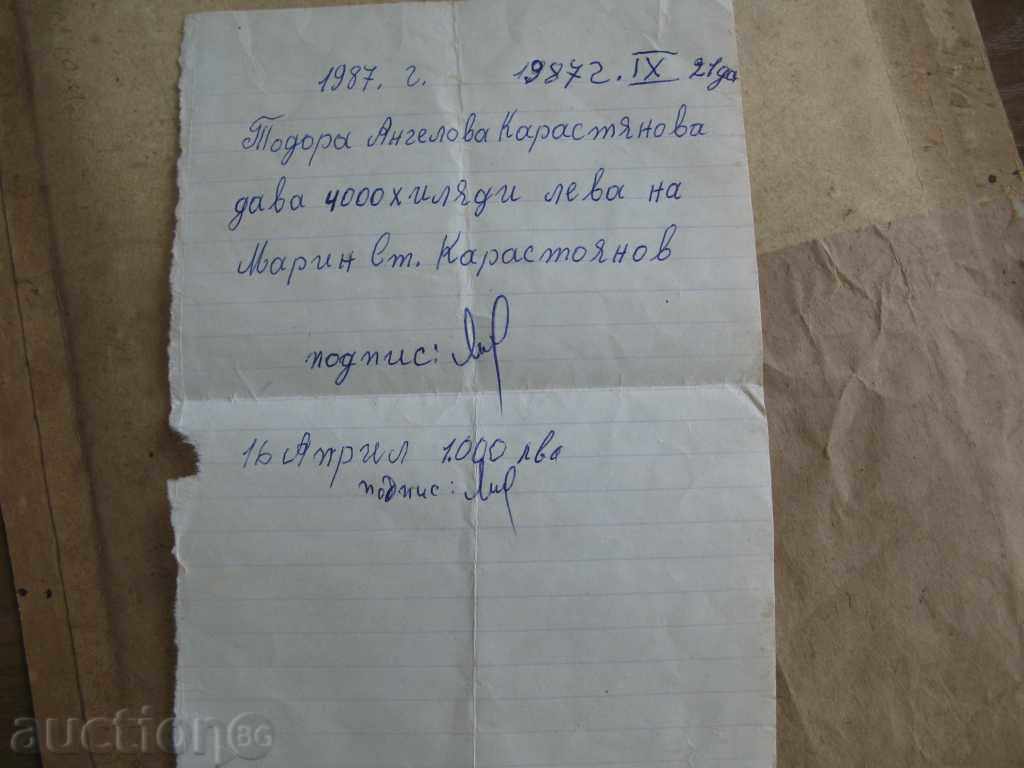 1987. г. 1987 г. IX 21 да
Тодора Ангелова Карастянова
дава 4000 хиляди лева на
Марин Ст. Карастоянов
подпис:
16 Април 1000 лва
подпис:
auction BG